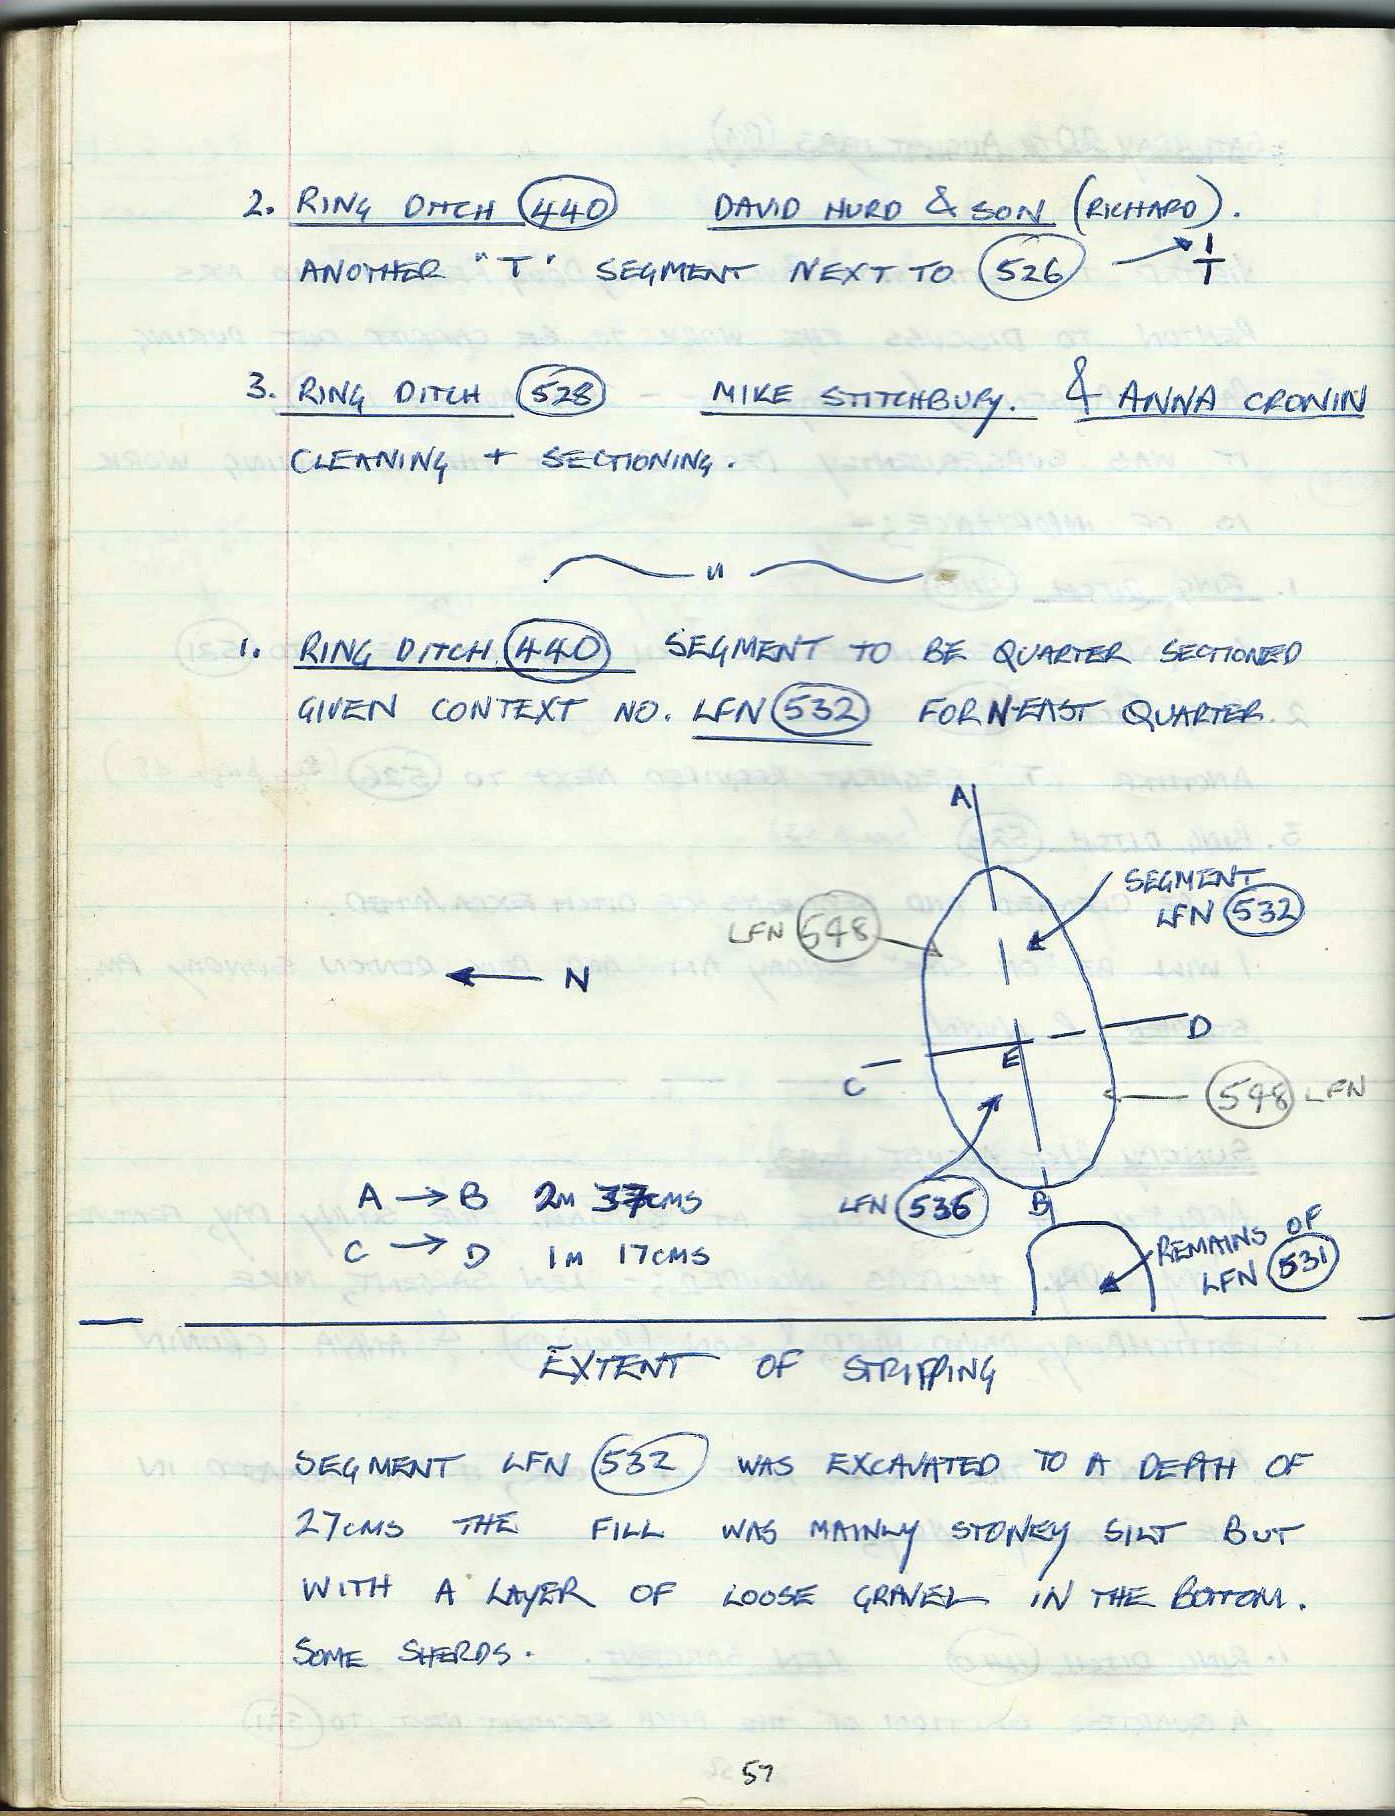 2. RING DITCH 440 DAVID HURD & SON (RICHARD).
ANOTHER "T" SEGMENT NEXT TO 526 T
3. RING DITCH 528 MIKE STITCHBURY. & ANNA CRONIN
CLEANING + SECTIONING.
"
1. RING DITCH 440 SEGMENT TO BE QUARTER SECTIONED
GIVEN CONTEXT NO. LFN 532 FOR N-EAST QUARTER.
A
SEGMENT
LFN 532
LFN 548
N
D
E
C
548 LFN
LFN 536
B
A → B 2M 37CMS
C → D 1M 17CMS
REMAINS OF
LFN 531
EXTENT OF STRIPPING
SEGMENT LFN 532 WAS EXCAVATED TO A DEPTH OF
27CMS THE FILL WAS MAINLY STONEY SILT BUT
WITH A LAYER OF LOOSE GRAVEL IN THE BOTTOM.
SOME SHERDS.
57